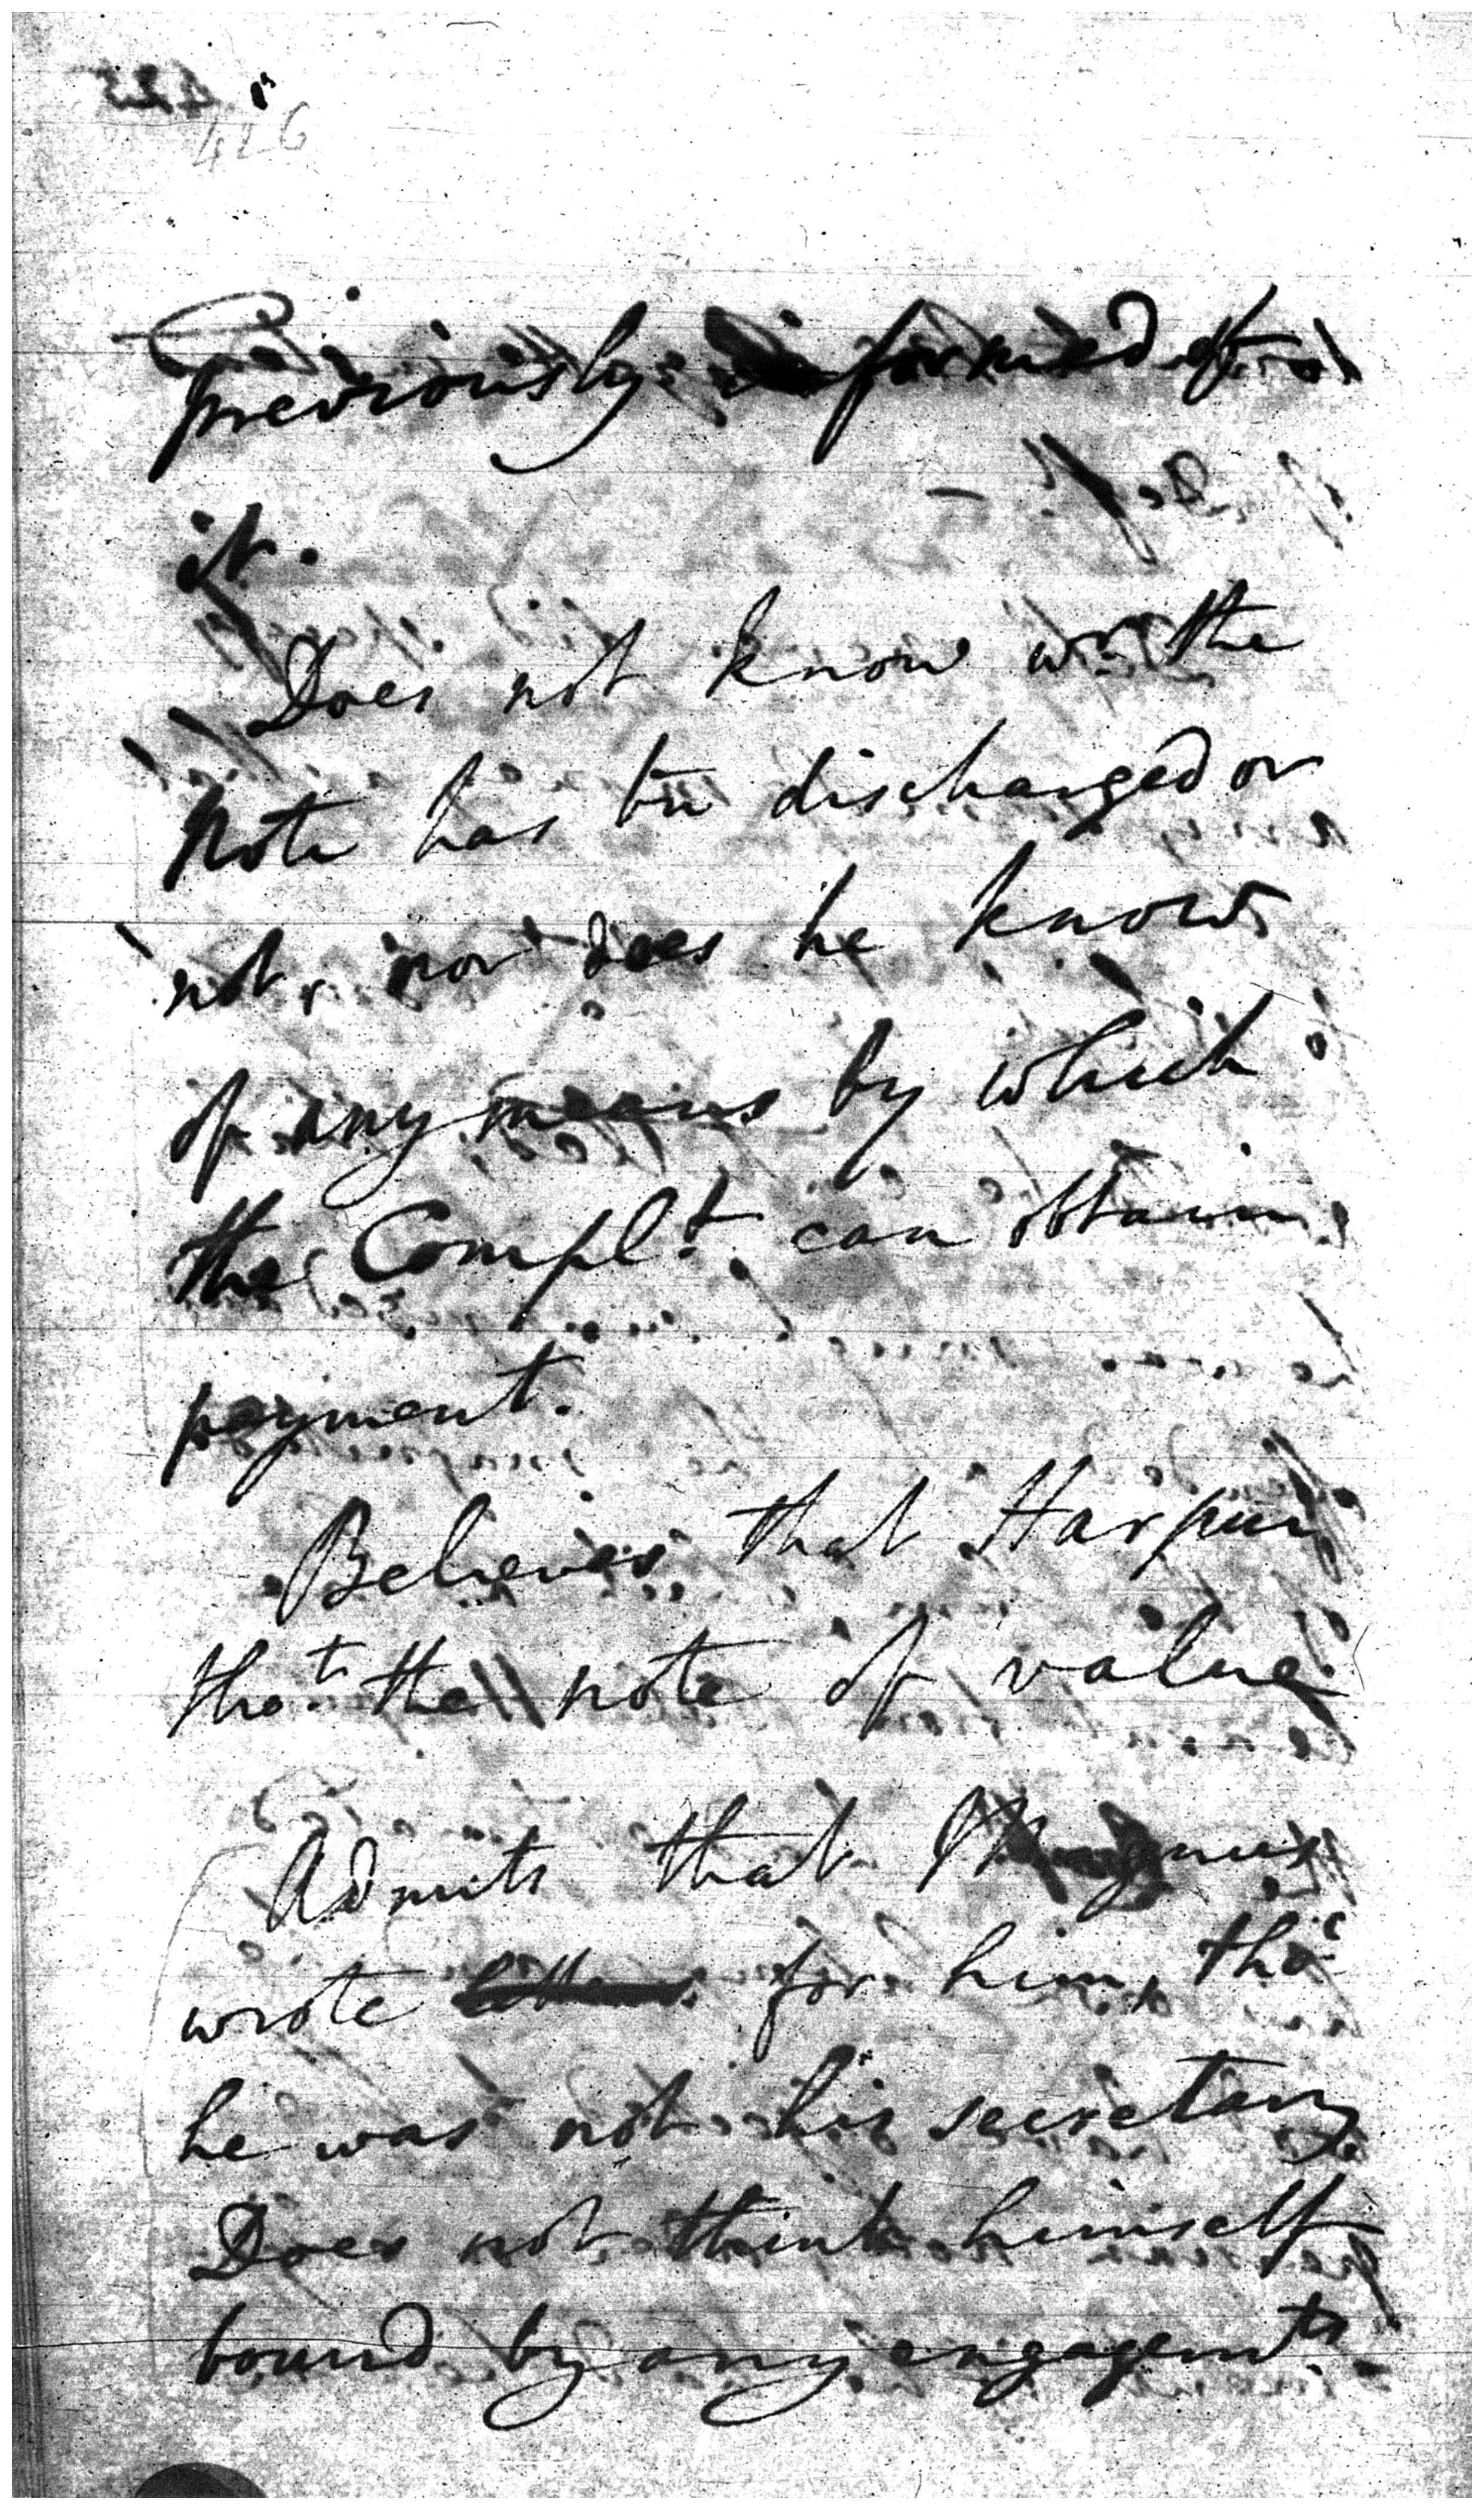 426
previously informed of
it.
Does not know wr. the
Note has bn discharged or
not, nor does he know
of any means by which
the Complt. can obtain
payment.
Believes that
thot. the note of value
Admits that Magnus
wrote letters for him, tho'
he was not his secretary.
Does not think himself
bound by any engagemts